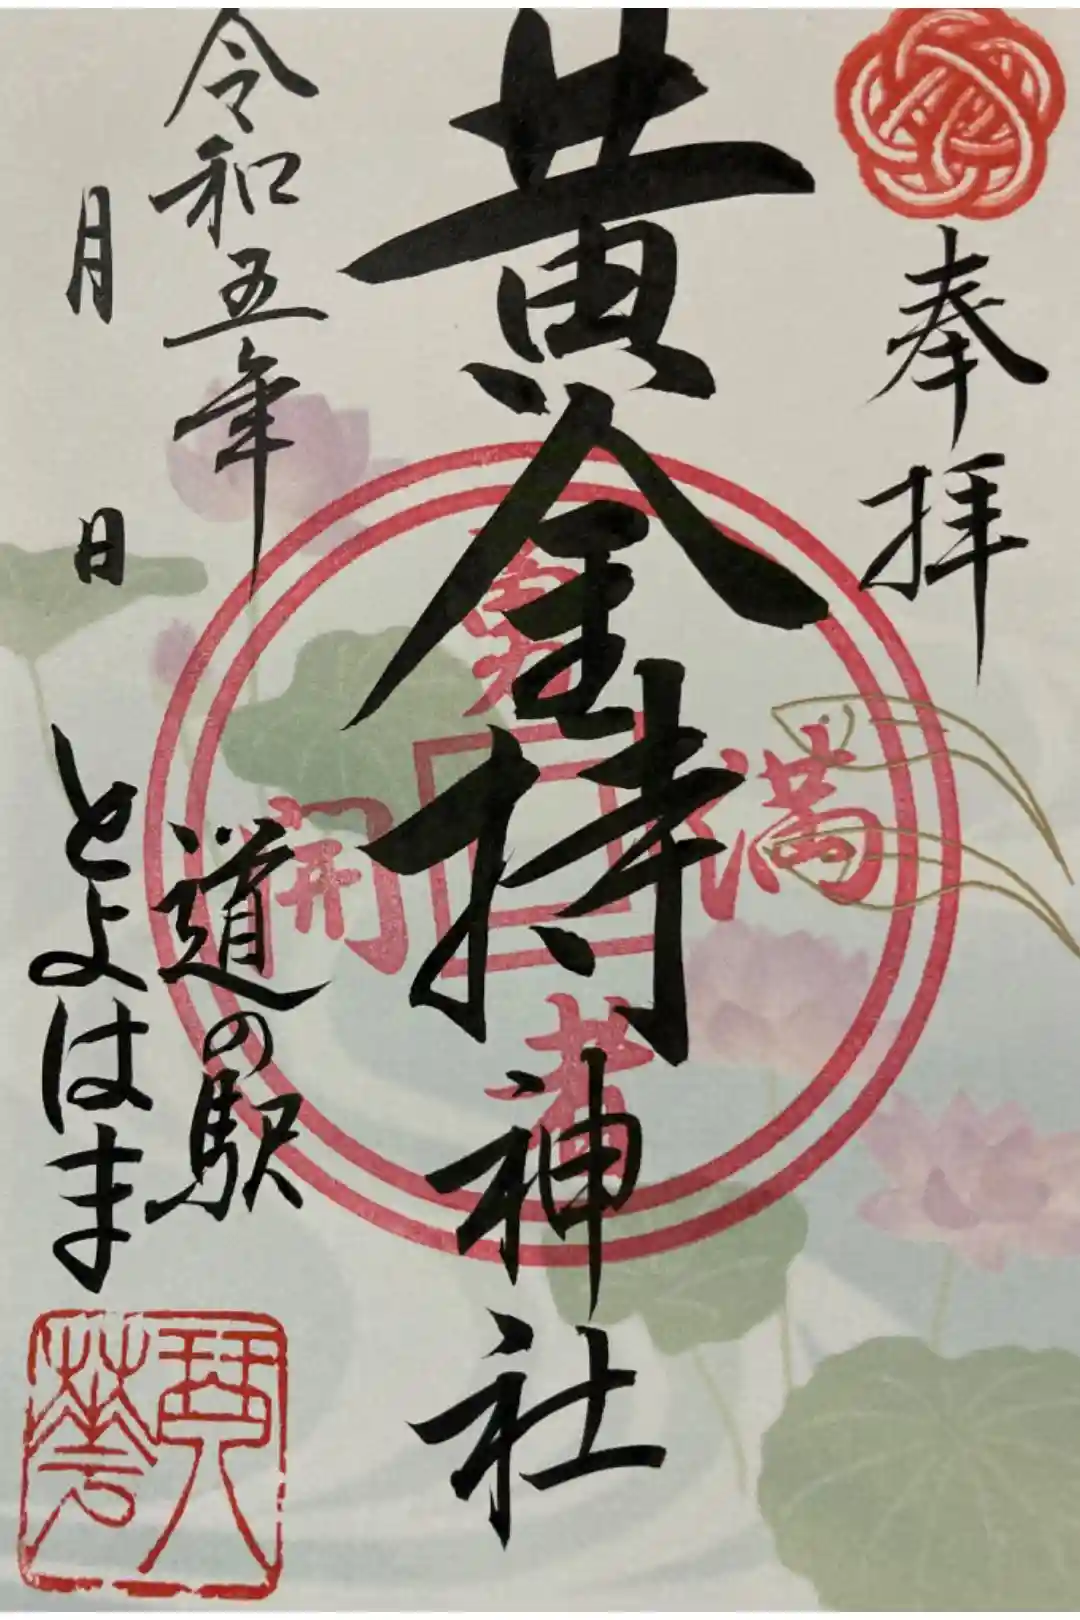 奉拝
黄金持神社
令和五年
月 日
道の駅
とよはま
満
開